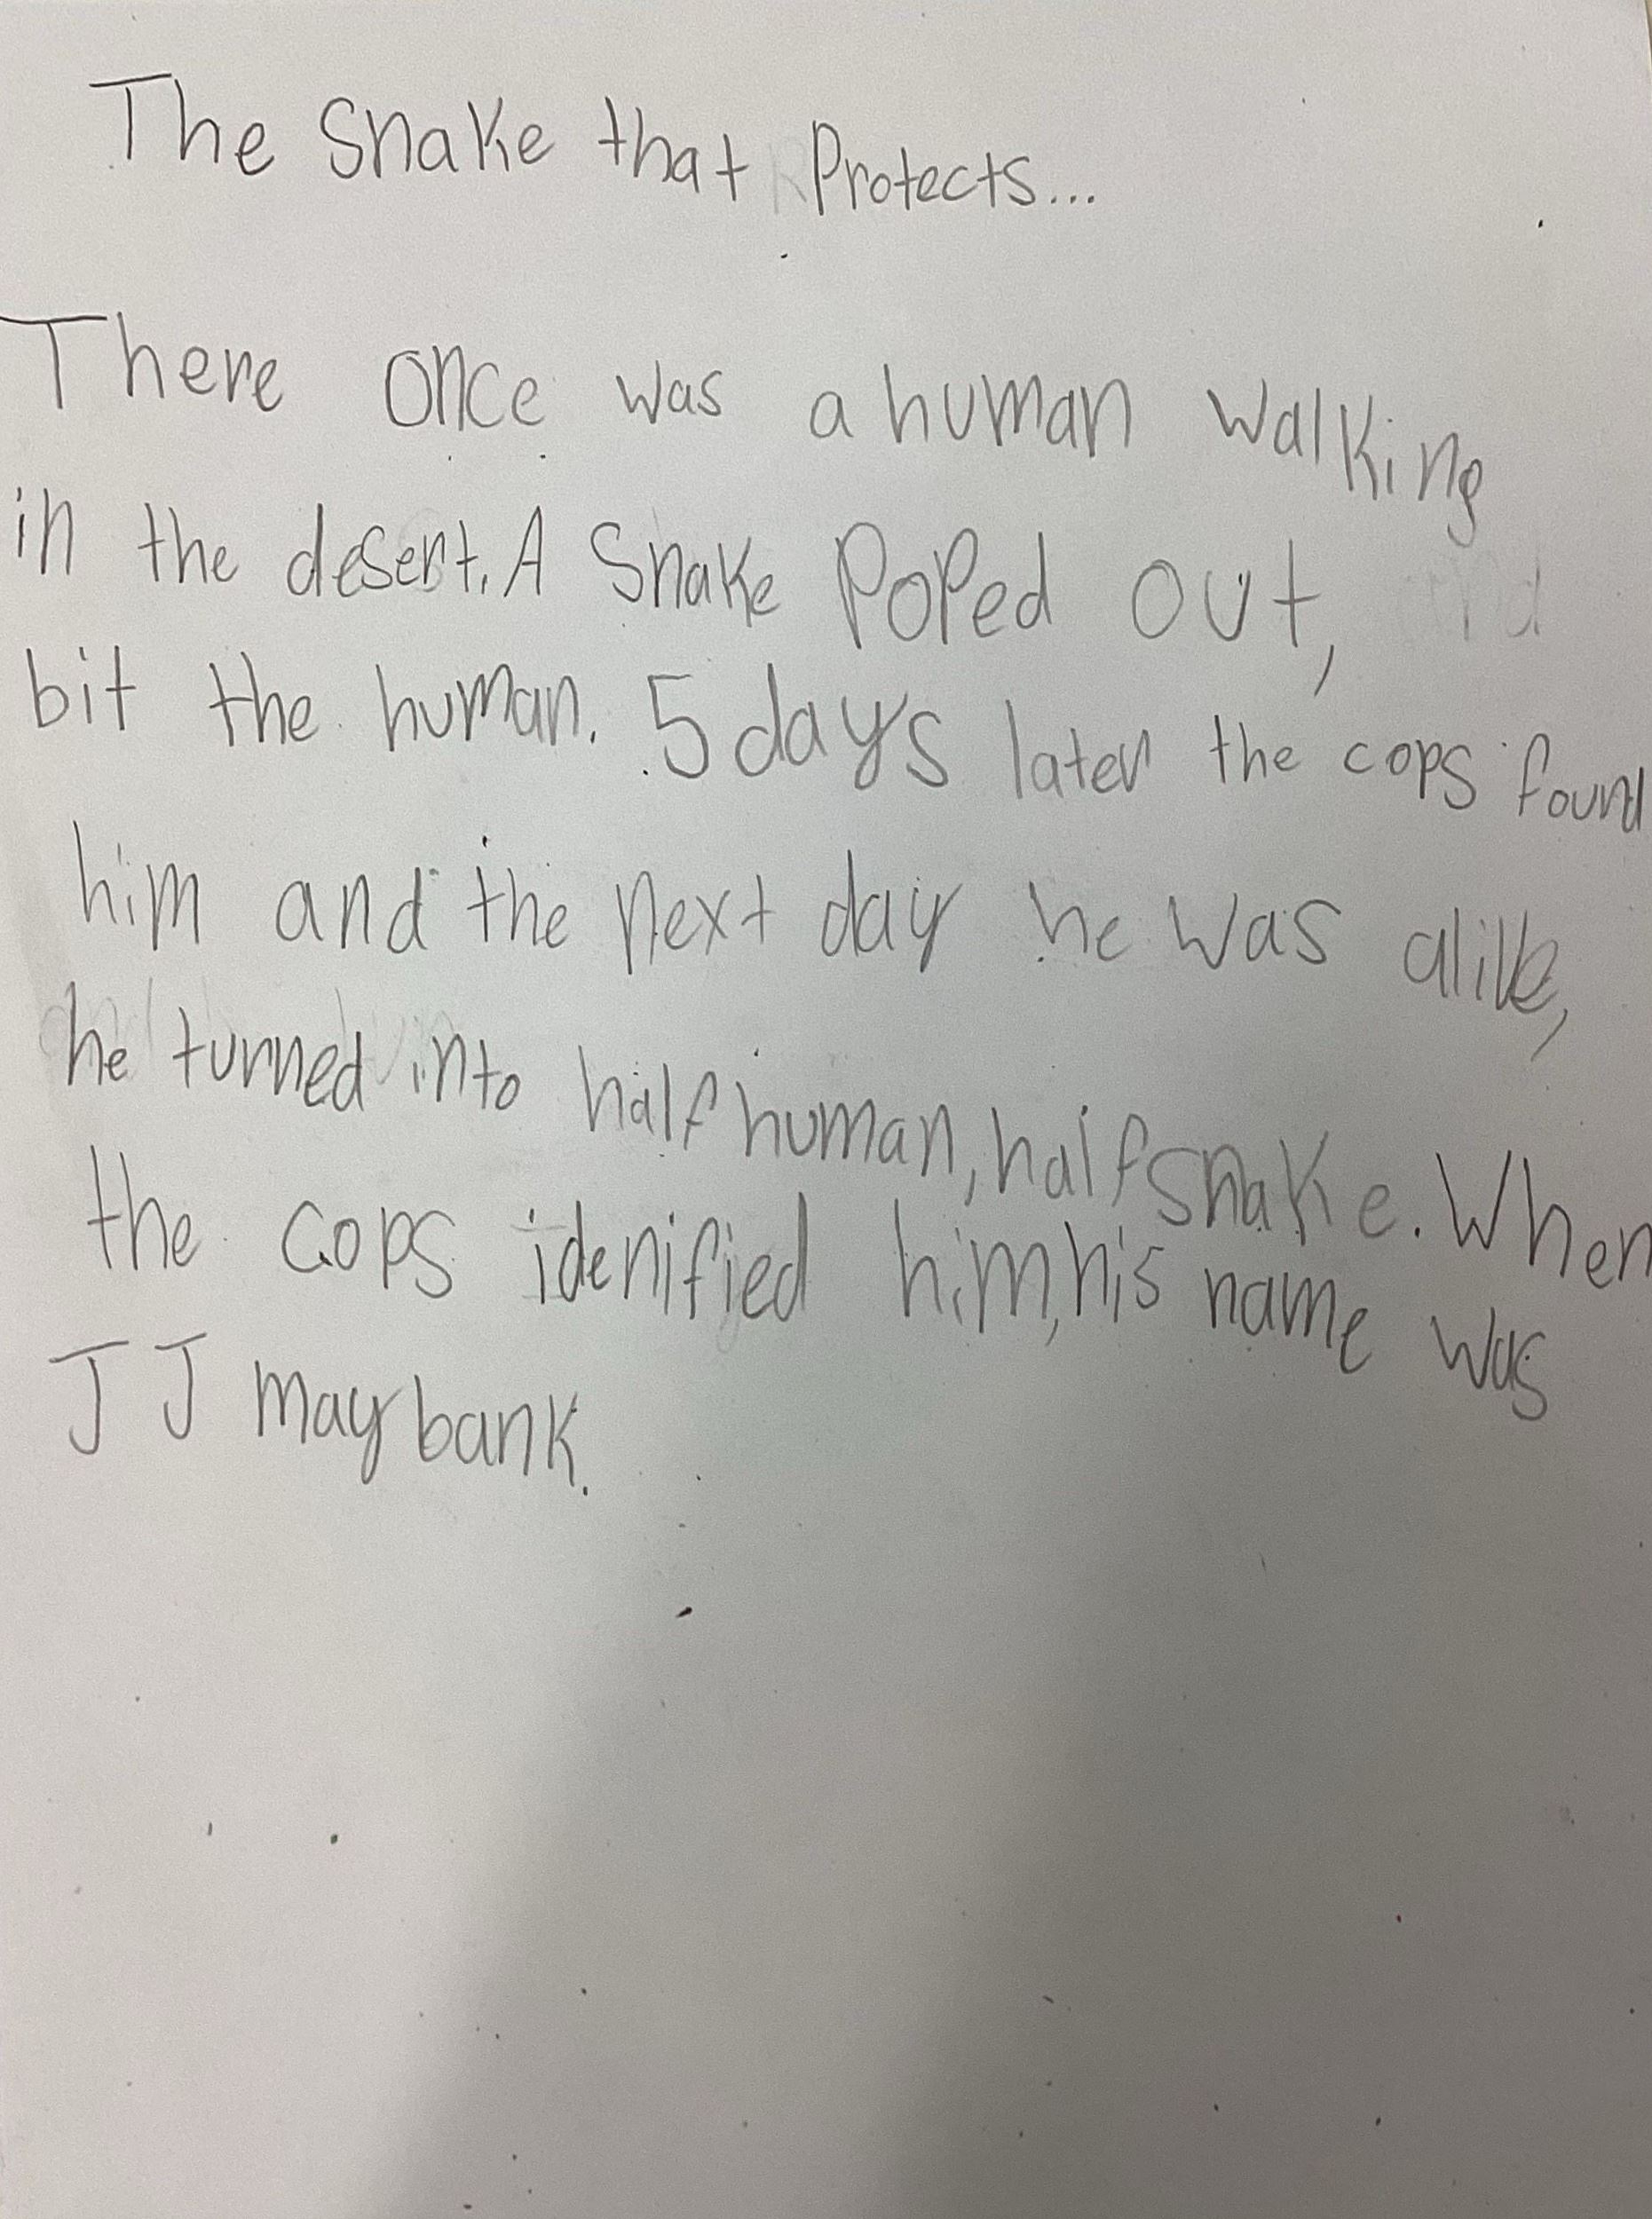 The Snake that Protects...
There once was a human walking
in the desert. A Snake Poped out,
bit the human. 5 days later the cops found
him and the next day he was alive,
he turned into half human, half snake. When
the cops idenified him, his name was
JJ maybank.